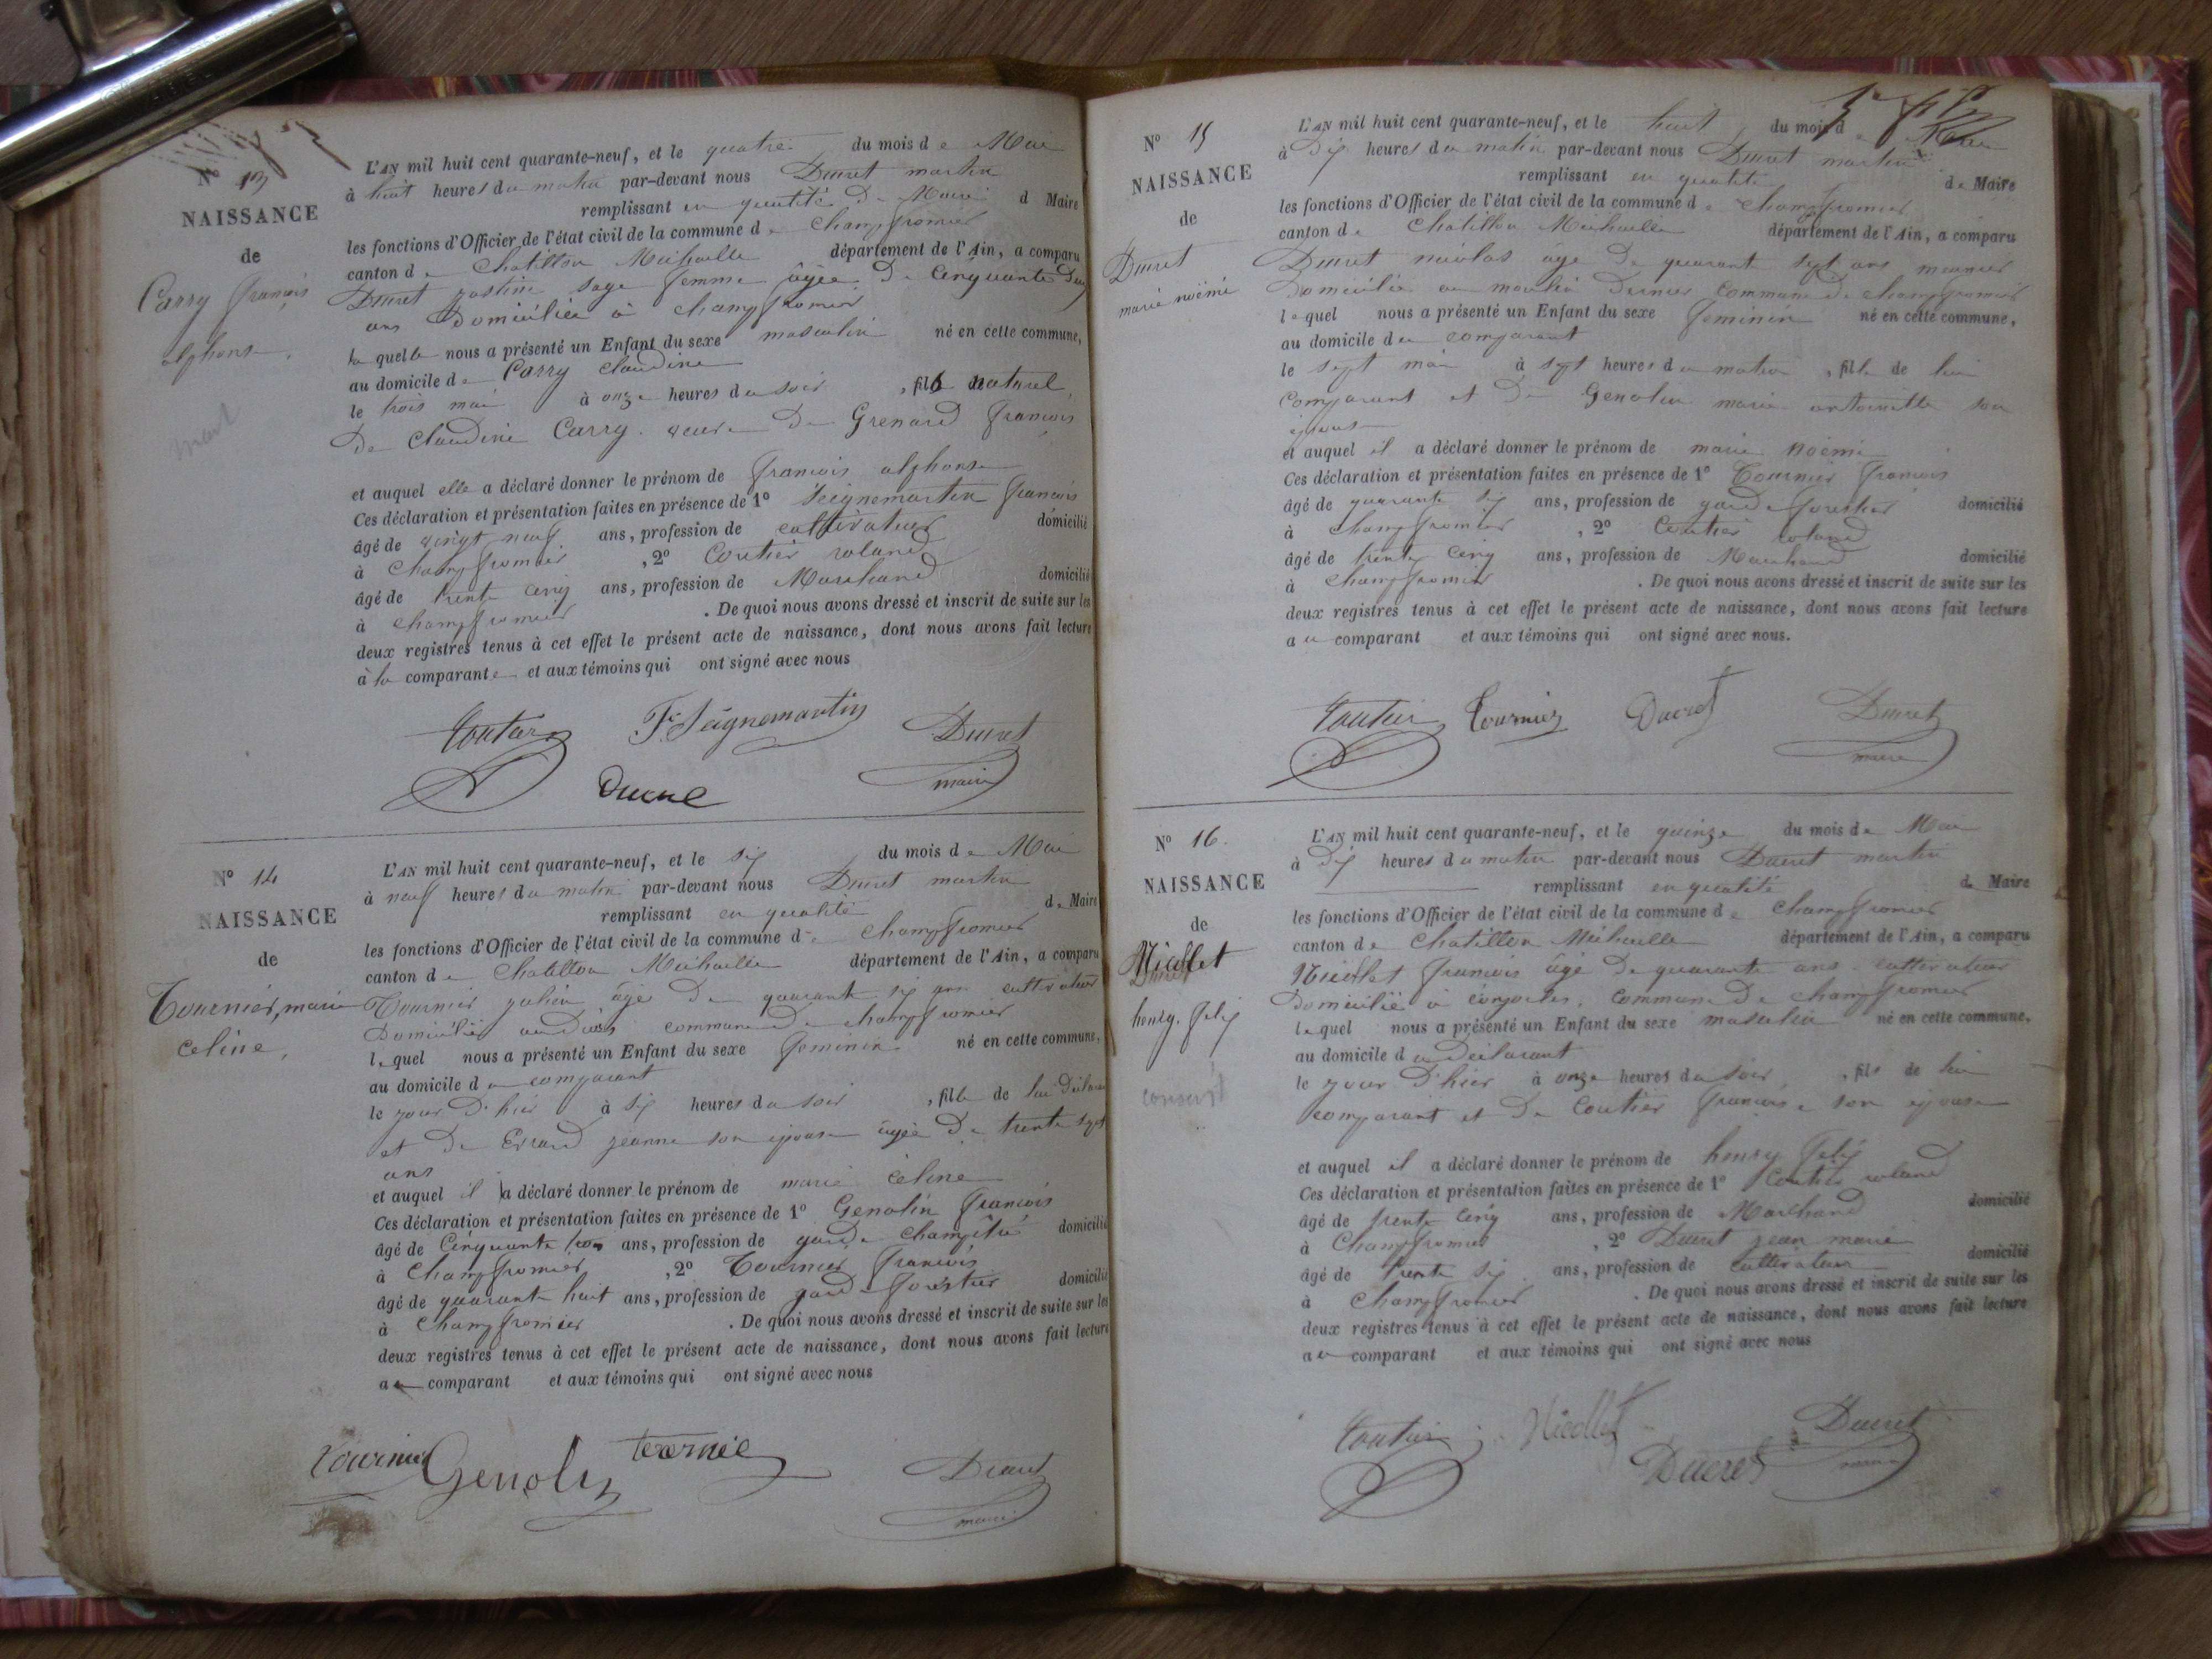 N° 13
NAISSANCE
de
Carry françois
alphonse,
mort
L'AN mil huit cent quarante-neuf, et le quatre du mois de Mai
à huit heures du matin par-devant nous Ducret martin
remplissant en qualité de Maire d Maire
les fonctions d'Officier de l'état civil de la commune de Champfromier
canton de Chatillon Michaille département de l'Ain, a comparu
Ducret justine sage femme âgée de Cinquante
ans Domiciliée à champfromier
laquelle nous a présenté un Enfant du sexe masculin né en cette commune,
au domicile de Carry Claudine
le trois mai à onze heures du soir , fils naturel
De Claudine Carry veuve De Grenard françois
et auquel elle a déclaré donner le prénom de françois alphonse
Ces déclaration et présentation faites en présence de 1° Seignemartin françois
âgé de vingt neuf ans, profession de cultivateur domicilié
à Champfromier , 2° Coutier roland
âgé de trente cinq ans, profession de Marchand domicilié
à champfromier . De quoi nous avons dressé et inscrit de suite sur les
deux registres tenus à cet effet le présent acte de naissance, dont nous avons fait lecture
à la comparante et aux témoins qui ont signé avec nous
Coutier F. Seignemartin Ducret
maire
N° 14
NAISSANCE
de
Tournier, marie
celine,
L'AN mil huit cent quarante-neuf, et le six du mois de Mai
à neuf heures du matin par-devant nous Ducret martin
remplissant en qualité de Maire
les fonctions d'Officier de l'état civil de la commune de Champfromier
canton de Chatillon Michaille département de l'Ain, a comparu
Tournier julien âgé De quarante six ans cultivateur
Domicilié commune De champfromier
lequel nous a présenté un Enfant du sexe feminin né en cette commune,
au domicile du comparant
le jour D'hier à six heures du soir , fille de lui
et De Evrard jeanne son épouse âgée De trente sept
ans
et auquel il a déclaré donner le prénom de marie céline
Ces déclaration et présentation faites en présence de 1° Genolin françois
âgé de Cinquante ans, profession de garde champêtre domicilié
à Champfromier , 2° Tournier françois
âgé de quarante huit ans, profession de garde forestier domicilié
à Champfromier . De quoi nous avons dressé et inscrit de suite sur les
deux registres tenus à cet effet le présent acte de naissance, dont nous avons fait lecture
au comparant et aux témoins qui ont signé avec nous
Tournier Genolin Ducret
maire
N° 15
NAISSANCE
de
Ducret
marie noëmi
L'AN mil huit cent quarante-neuf, et le huit du mois de Mai
à Dix heures du matin par-devant nous Ducret martin
remplissant en qualité de Maire
les fonctions d'Officier de l'état civil de la commune de champfromier
canton de Chatillon Michaille département de l'Ain, a comparu
Ducret nicolas âgé De quarante sept ans meunier
Domicilié au moulin Commune De champfromier
lequel nous a présenté un Enfant du sexe feminin né en cette commune,
au domicile du comparant
le sept mai à sept heures du matin , fille de lui
Comparant et De Genolin marie antoinette son
épouse
et auquel il a déclaré donner le prénom de marie noëmi
Ces déclaration et présentation faites en présence de 1° Tournier françois
âgé de quarante six ans, profession de garde forestier domicilié
à champfromier , 2° Coutier roland
âgé de trente cinq ans, profession de Marchand domicilié
à champfromier . De quoi nous avons dressé et inscrit de suite sur les
deux registres tenus à cet effet le présent acte de naissance, dont nous avons fait lecture
au comparant et aux témoins qui ont signé avec nous.
Coutier Tournier Ducret Ducret
maire
N° 16.
NAISSANCE
de
Nicollet
henry, felix
conscrit
L'AN mil huit cent quarante-neuf, et le quinze du mois de Mai
à Dix heures du matin par-devant nous Ducret martin
remplissant en qualité de Maire
les fonctions d'Officier de l'état civil de la commune de Champfromier
canton de Chatillon Michaille département de l'Ain, a comparu
Nicollet françois âgé De quarante ans cultivateur
Domicilié à Commune De champfromier
lequel nous a présenté un Enfant du sexe masculin né en cette commune,
au domicile du Déclarant
le jour D'hier à onze heures du soir , fils de lui
comparant et De Coutier françoise son épouse
et auquel il a déclaré donner le prénom de henry felix
Ces déclaration et présentation faites en présence de 1° Coutier roland
âgé de trente cinq ans, profession de Marchand domicilié
à Champfromier , 2° Ducret jean marie
âgé de trente six ans, profession de cultivateur domicilié
à Champfromier . De quoi nous avons dressé et inscrit de suite sur les
deux registres tenus à cet effet le présent acte de naissance, dont nous avons fait lecture
au comparant et aux témoins qui ont signé avec nous
Coutier Nicollet Ducret
Ducret maire